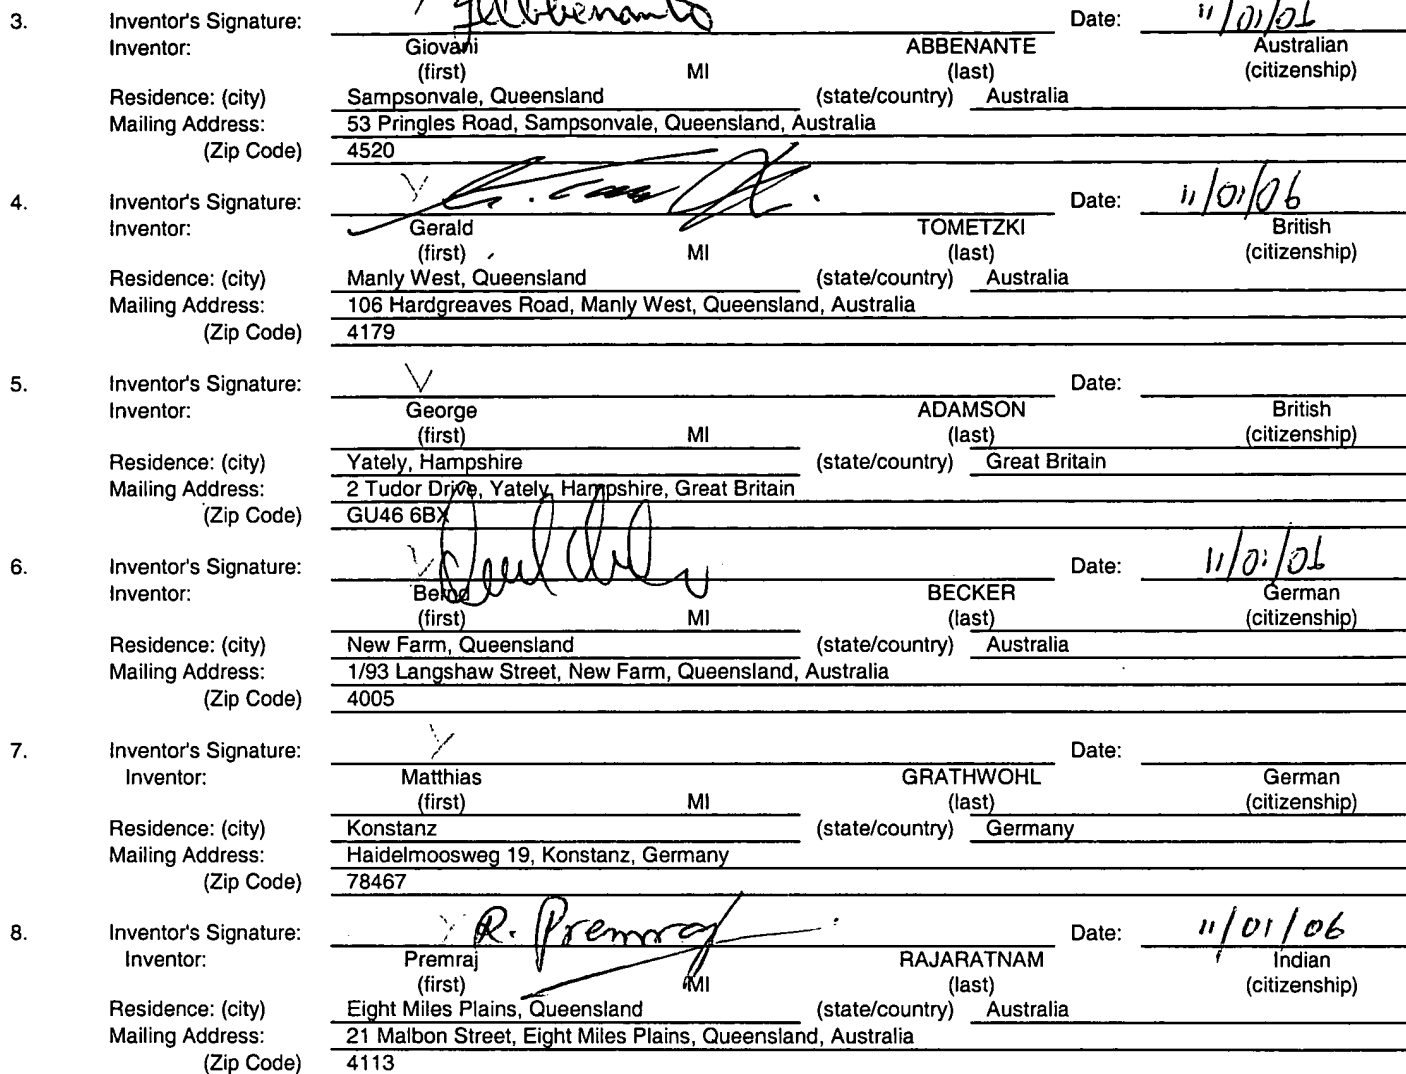 3. Inventor's Signature: Date: 11/01/06
Inventor: Giovani ABBENANTE Australian
(first) MI (last) (citizenship)
Residence: (city) Sampsonvale, Queensland (state/country) Australia
Mailing Address: 53 Pringles Road, Sampsonvale, Queensland, Australia
(Zip Code) 4520
4. Inventor's Signature: Date: 11/01/06
Inventor: Gerald TOMETZKI British
(first) MI (last) (citizenship)
Residence: (city) Manly West, Queensland (state/country) Australia
Mailing Address: 106 Hardgreaves Road, Manly West, Queensland, Australia
(Zip Code) 4179
5. Inventor's Signature: Date:
Inventor: George ADAMSON British
(first) MI (last) (citizenship)
Residence: (city) Yately, Hampshire (state/country) Great Britain
Mailing Address: 2 Tudor Drive, Yately, Hampshire, Great Britain
(Zip Code) GU46 6BX
6. Inventor's Signature: Date: 11/01/06
Inventor: Bernd BECKER German
(first) MI (last) (citizenship)
Residence: (city) New Farm, Queensland (state/country) Australia
Mailing Address: 1/93 Langshaw Street, New Farm, Queensland, Australia
(Zip Code) 4005
7. Inventor's Signature: Date:
Inventor: Matthias GRATHWOHL German
(first) MI (last) (citizenship)
Residence: (city) Konstanz (state/country) Germany
Mailing Address: Haidelmoosweg 19, Konstanz, Germany
(Zip Code) 78467
8. Inventor's Signature: R. Premraj Date: 11/01/06
Inventor: Premraj RAJARATNAM Indian
(first) MI (last) (citizenship)
Residence: (city) Eight Miles Plains, Queensland (state/country) Australia
Mailing Address: 21 Malbon Street, Eight Miles Plains, Queensland, Australia
(Zip Code) 4113